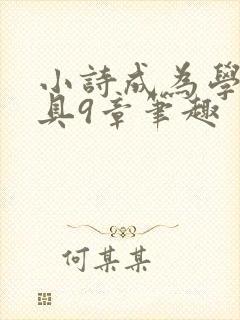 小詩成為學
具9章筆趣
何某某